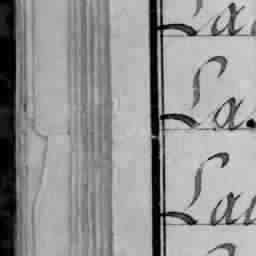 La
La.
Lau